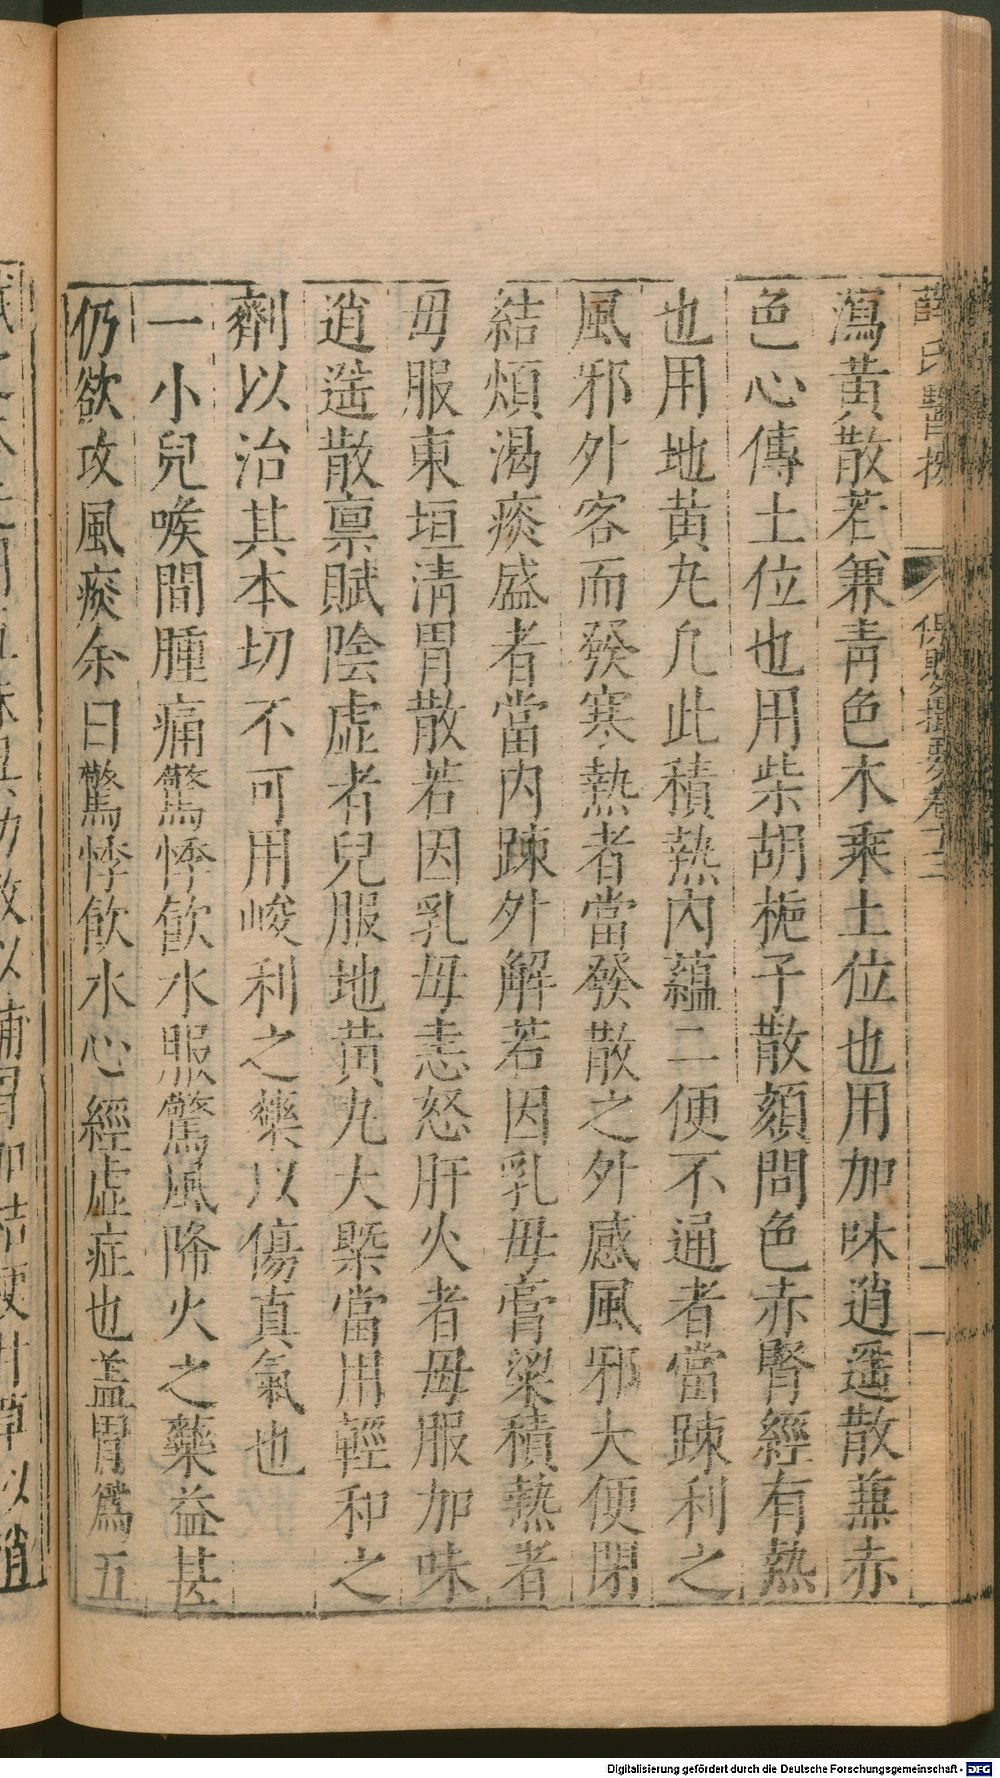 薛氏醫按 保嬰撮要卷十三
瀉黃散若兼青色木乘土位也用加味逍遙散兼赤
色心傳土位也用柴胡梔子散頦間色赤腎經有熱
也用地黄丸凢此積熱内蘊二便不通者當疎利之
風邪外客而發寒熱者當發散之外感風邪大便閉
結煩渴痰盛者當内疎外解若因乳母膏粱積熱者
母服東垣清胃散若因乳母恚怒肝火者母服加味
逍遥散禀賦陰虚者兒服地黄丸大槩當用輕和之
劑以治其本切不可用峻利之藥以傷真氣也
一小兒喉間腫痛驚悸飲水服驚風降火之藥益甚
仍欲攻風痰余曰驚悸飲水心經虚症也盖胃為五
以補胃加桔梗甘草以消
Digitalisierung gefördert durch die Deutsche Forschungsgemeinschaft - DFG